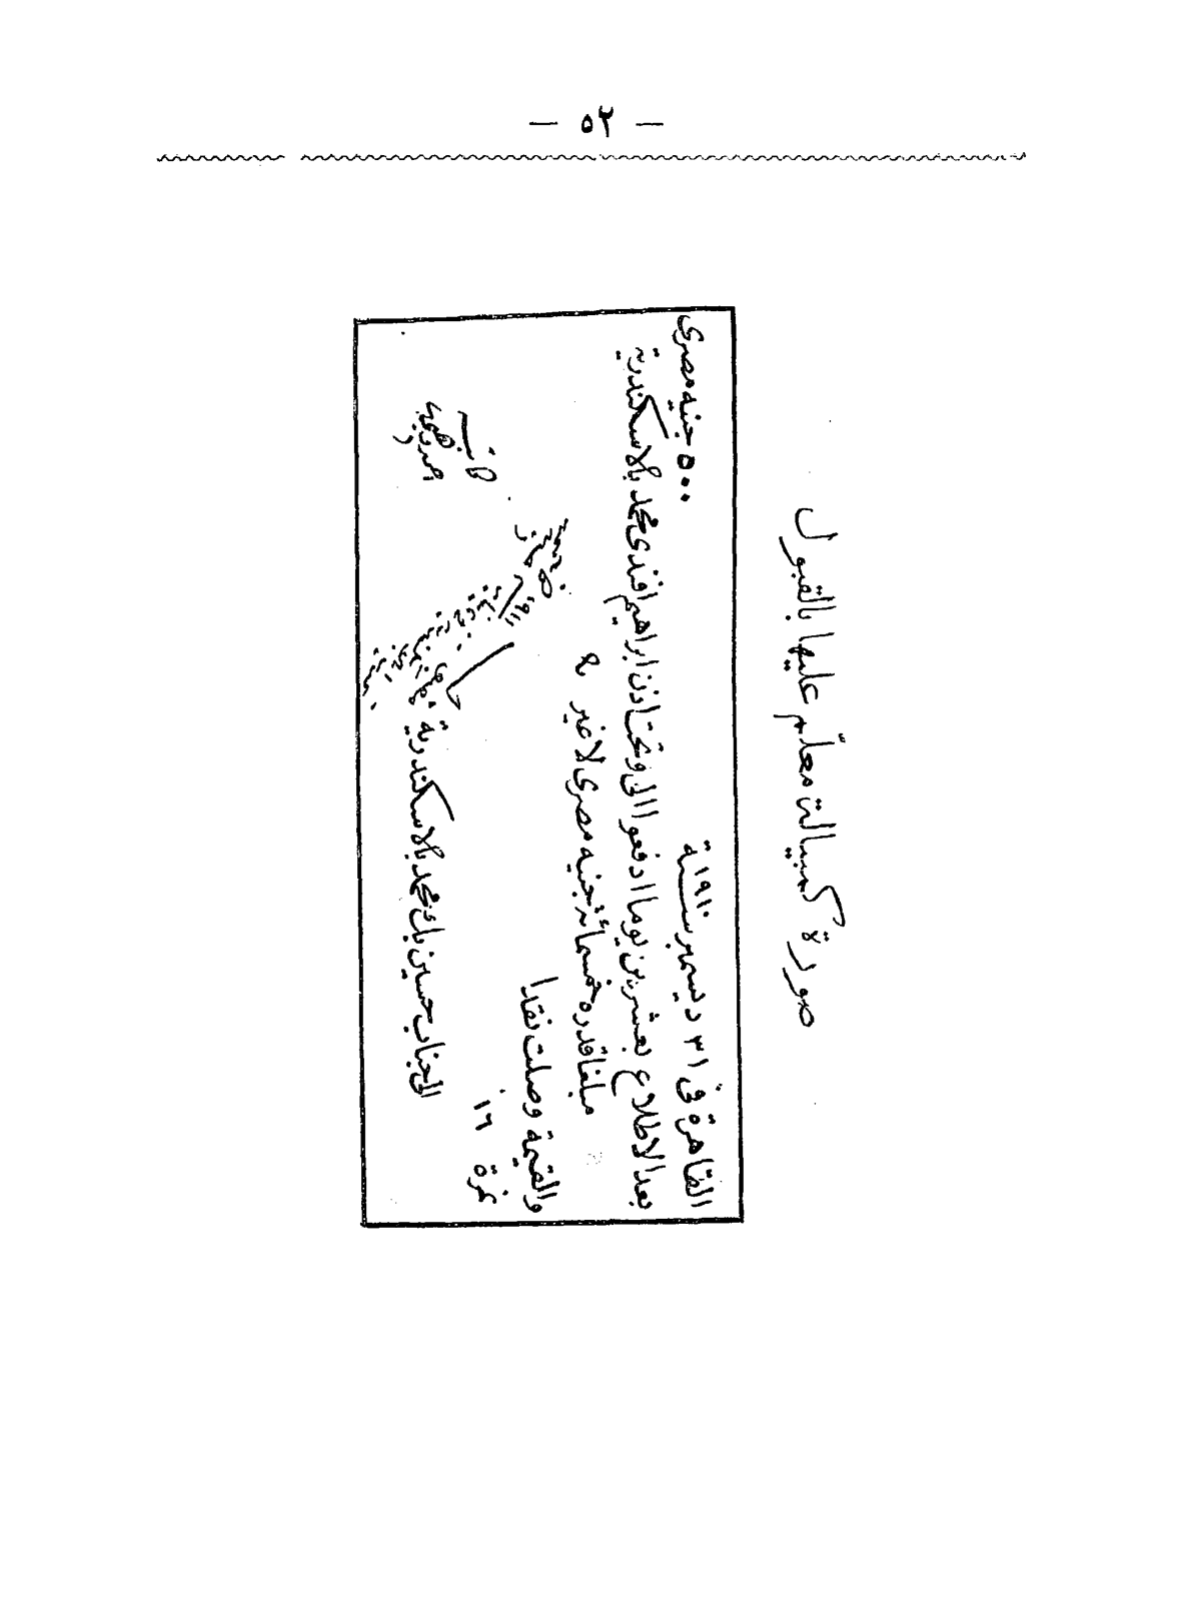 — ٥٢ —
صورة كمبيالة معلّم عليها بالقبول
القاهرة فى ٣١ ديسمبر سنة ١٩١٠ ٥٠٠ جنيه مصرى
بعد الاطلاع بعشرين يوما ادفعوا الى وتحت اذن ابراهيم افندى محمد بالاسكندرية
مبلغا قدره خمسمائة جنيه مصرى لا غير
والقيمة وصلت نقدا
نمرة ١٦
كاتبه
احمد فهمى
الى جناب حسين بك محمد بالاسكندرية